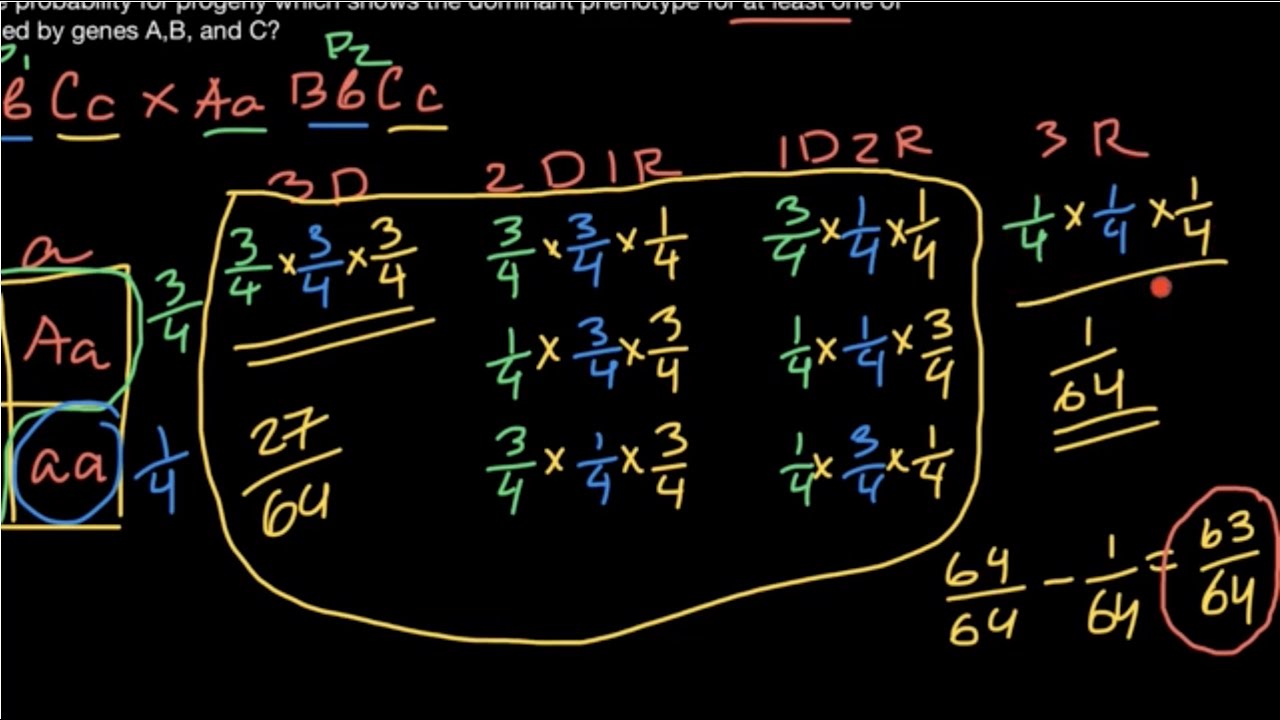 probability for progeny which shows the dominant phenotype for at least one of
ed by genes A,B, and C?
P1 P2
b Cc × Aa BbCc
3 D 2 D 1 R 1D 2 R 3 R
3/4 × 3/4 × 3/4 3/4 × 3/4 × 1/4 3/4 × 1/4 × 1/4 1/4 × 1/4 × 1/4
a
Aa 3/4 1/4 × 3/4 × 3/4 1/4 × 1/4 × 3/4 1/64
aa 1/4 27/64 3/4 × 1/4 × 3/4 1/4 × 3/4 × 1/4
64/64 - 1/64 = 63/64